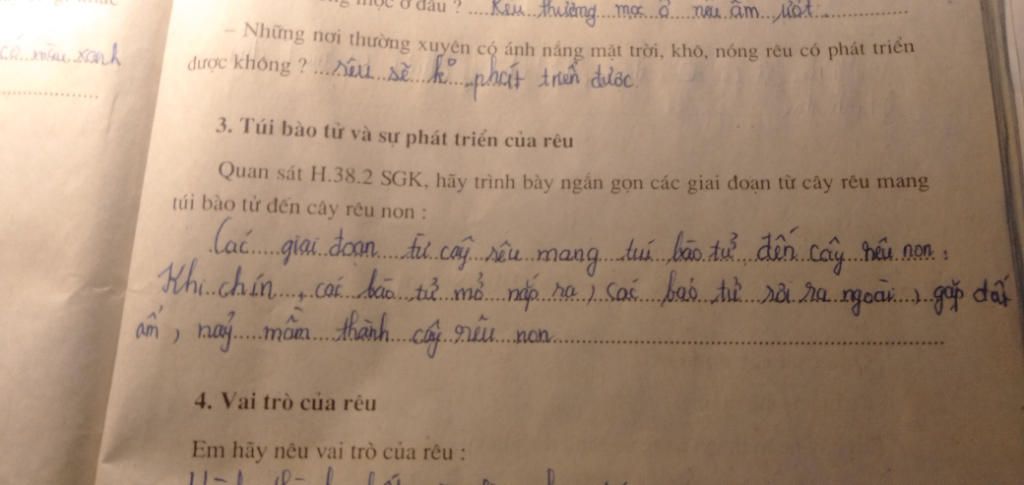 mọc ở đâu ? ... Rêu thường mọc ở nơi ẩm ướt
có màu xanh
– Những nơi thường xuyên có ánh nắng mặt trời, khô, nóng rêu có phát triển
được không ? ... rêu sẽ ko phát triển được
3. Túi bào tử và sự phát triển của rêu
Quan sát H.38.2 SGK, hãy trình bày ngắn gọn các giai đoạn từ cây rêu mang
túi bào tử đến cây rêu non :
Các giai đoạn từ cây rêu mang túi bào tử đến cây rêu non :
Khi chín, các bào tử mở nắp ra, các bào tử rơi ra ngoài, gặp đất
ẩm, nảy mầm thành cây rêu non
4. Vai trò của rêu
Em hãy nêu vai trò của rêu :